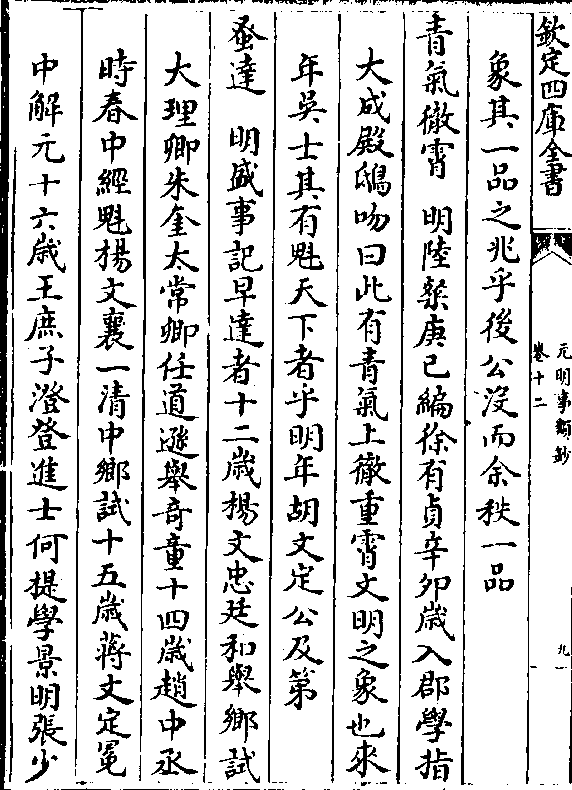 欽定四庫全書
元明事類鈔
卷十二
九
象其一品之兆乎後公沒而余秩一品
青氣徹霄　明陸粲庚已編徐有貞辛夘歲入郡學指
大成殿鴟吻曰此有青氣上徹重霄文明之象也來
年吳士其有魁天下者乎明年胡文定公及第
蚤達　明盛事記早達者十二歲楊文忠廷和舉鄉試
大理卿朱奎太常卿任道遜舉奇童十四歲趙中丞
時春中經魁楊文襄一清中鄉試十五歲蔣文定冕
中解元十六歲王庶子澄登進士何提學景明張少